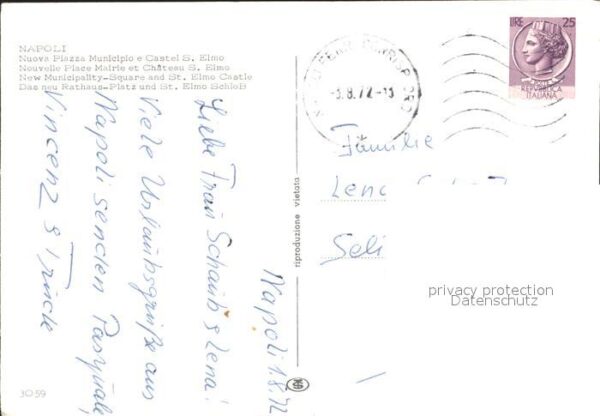 NAPOLI
Nuova Piazza Municipio e Castel S. Elmo
Nouvelle Place Mairie et Château S. Elmo
New Municipality-Square and St. Elmo Castle
Das neu Rathaus-Platz und St. Elmo Schloß
LIRE 25
POSTE
REPVBBLICA
ITALIANA
-3.8.72-13
Napoli 1.8.72
Liebe Frau Schaub & Lena!
Viele Urlaubsgrüße aus
Napoli senden Pasquale,
Vincenz &
riproduzione vietata
Familie
Lena
Seli
privacy protection
Datenschutz
3059